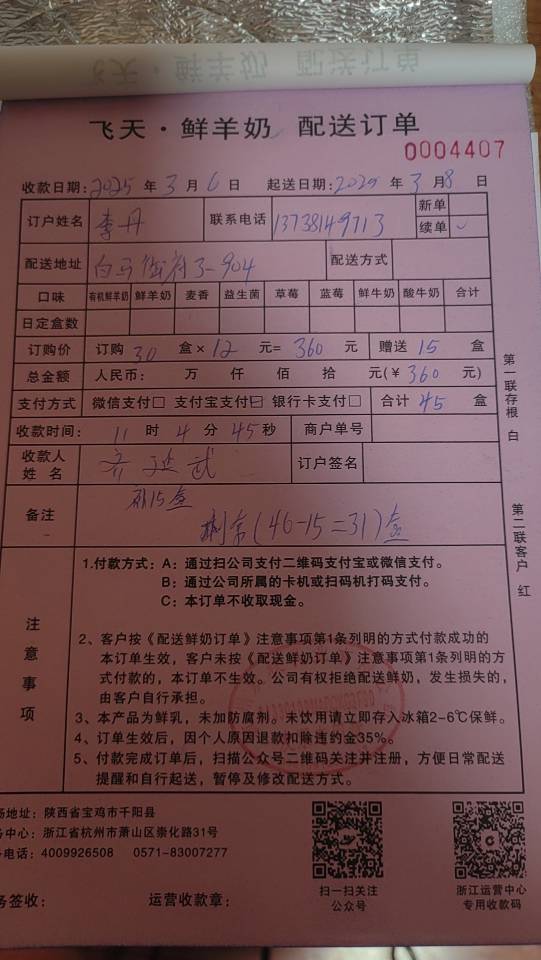 飞天·鲜羊奶 配送订单
0004407
收款日期:2025 年 3 月 6 日 起送日期:2025 年 3 月 8 日
订户姓名 李丹 联系电话 13738149713 新单
续单 ✓
配送地址 白马街府3-904 配送方式
口味 有机鲜羊奶 鲜羊奶 麦香 益生菌 草莓 蓝莓 鲜牛奶 酸牛奶 合计
日定盒数
订购价 订购 30 盒× 12 元= 360 元 赠送 15 盒
总金额 人民币: 万 仟 佰 拾 元(¥ 360 元)
支付方式 微信支付□ 支付宝支付☑ 银行卡支付□ 合计 45 盒
收款时间: 11 时 4 分 45 秒 商户单号
收款人姓名 订户签名
备注 补15盒
剩余(46-15=31)盒
第一联存根 白
第二联客户 红
注意事项
1.付款方式:A:通过扫公司支付二维码支付宝或微信支付。
B:通过公司所属的卡机或扫码机打码支付。
C:本订单不收取现金。
2、客户按《配送鲜奶订单》注意事项第1条列明的方式付款成功的
本订单生效,客户未按《配送鲜奶订单》注意事项第1条列明的方
式付款的,本订单不生效。公司有权拒绝配送鲜奶,发生损失的,
由客户自行承担。
3、本产品为鲜乳,未加防腐剂。未饮用请立即存入冰箱2-6℃保鲜。
4、订单生效后,因个人原因退款扣除违约金35%。
5、付款完成订单后,扫描公众号二维码关注并注册,方便日常配送
提醒和自行起送,暂停及修改配送方式。
场地址:陕西省宝鸡市千阳县
务中心:浙江省杭州市萧山区崇化路31号
电话:4009926508 0571-83007277
扫一扫关注
公众号
浙江运营中心
专用收款码
务签收: 运营收款章: